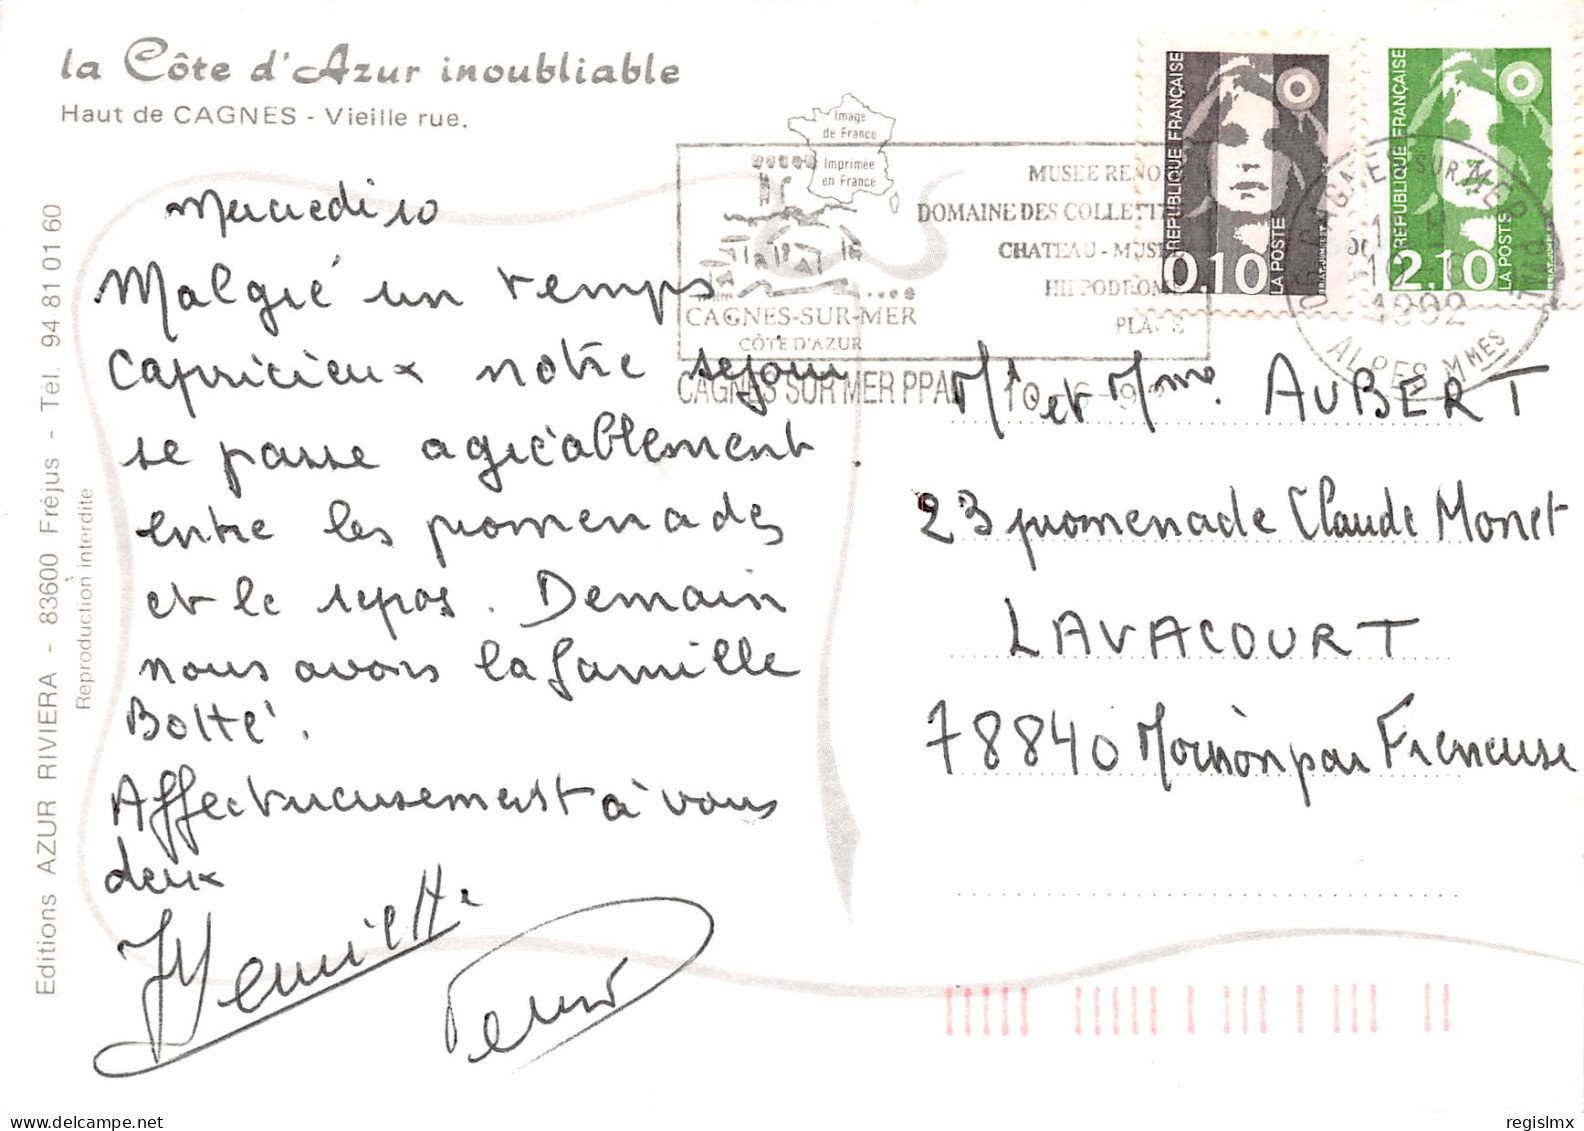 la Côte d'Azur inoubliable
Haut de CAGNES - Vieille rue.
Editions AZUR RIVIERA - 83600 Fréjus - Tél. 94 81 01 60
Reproduction interdite
Image
de France
Imprimée
en France
CAGNES-SUR-MER
CÔTE D'AZUR
MUSEE RENO
DOMAINE DES COLLETT
CHATEAU - MUSE
HIPPODROME
PLAGE
CAGNES SUR MER PPAL
CAGNES SUR MER PPAL
1992
ALPES MMES
RÉPUBLIQUE FRANÇAISE
0,10
LA POSTE
RÉPUBLIQUE FRANÇAISE
2,10
LA POSTE
Mercredi 10
Malgré un temps
capricieux notre séjour
se passe agréablement
entre les promenades
et le repos. Demain
nous avons la famille
Botté.
Affectueusement à vous
deux
Mr et Mme. AUBERT
23 promenade Claude Monet
LAVACOURT
78840 Moisson par Freneuse
regislmx